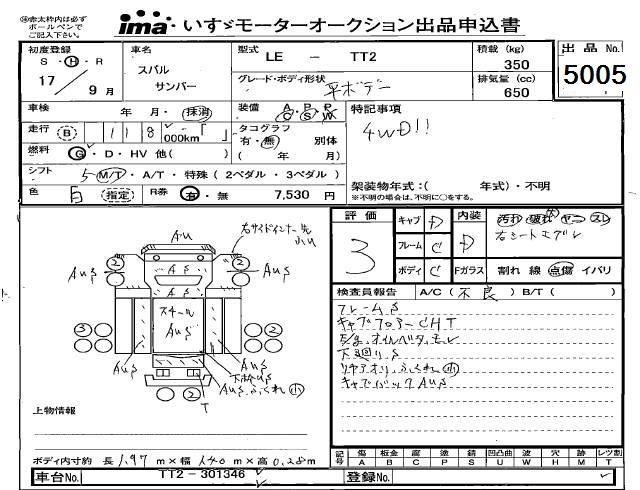 ※赤太枠内は必ず
ボールペンで
ご記入下さい。
ima いすゞモーターオークション出品申込書
初度登録
S・H・R
17
9月
車名
スバル
サンバー
型式
LE － TT2
グレード・ボディ形状
平ボデー
積載 (kg)
350
排気量 (cc)
650
出品 No.
5005
車検
年 月・抹消
装備
A・P・P
C S W
特記事項
4WD!!
走行 B 118 000km「 」
タコグラフ
有・無 別体
( 年 月)
燃料 G・D・HV 他( )
シフト 5 M/T・A/T・特殊 (2ペダル・3ペダル)
架装物年式:( 年式)・不明
※不明の場合は、不明に○をする。
色 白 (指定) R券 有・無 7,530 円
評価
3
キャブ D
フレーム C
ボディ C
内装 D
Fガラス
汚れ 破れ ヤニ スレ
右シートエグレ
割れ 線 点傷 イバリ
検査員報告 A/C (不良) B/T ( )
フレームS
キャブフロアーCHT
E/g.オイルベタ.モレ
下廻りS
リヤアオリ.ふくれ 小
キャブバックAUS
AU
右サイドインナー先
小U
2
2
AUS
AUS
AS
AS
スチール
AUS
3
2
AUS
下枠US
AUS.ふくれ 小
T
上物情報
ボディ内寸約 長 1.97 m×幅 1.40 m×高 0.28 m
記号
傷 板金 腐 塗 錆 凹凸曲 波 穴 跡 レツ割
A B C P S U W H M T
車台No. TT2-301346
登録No.